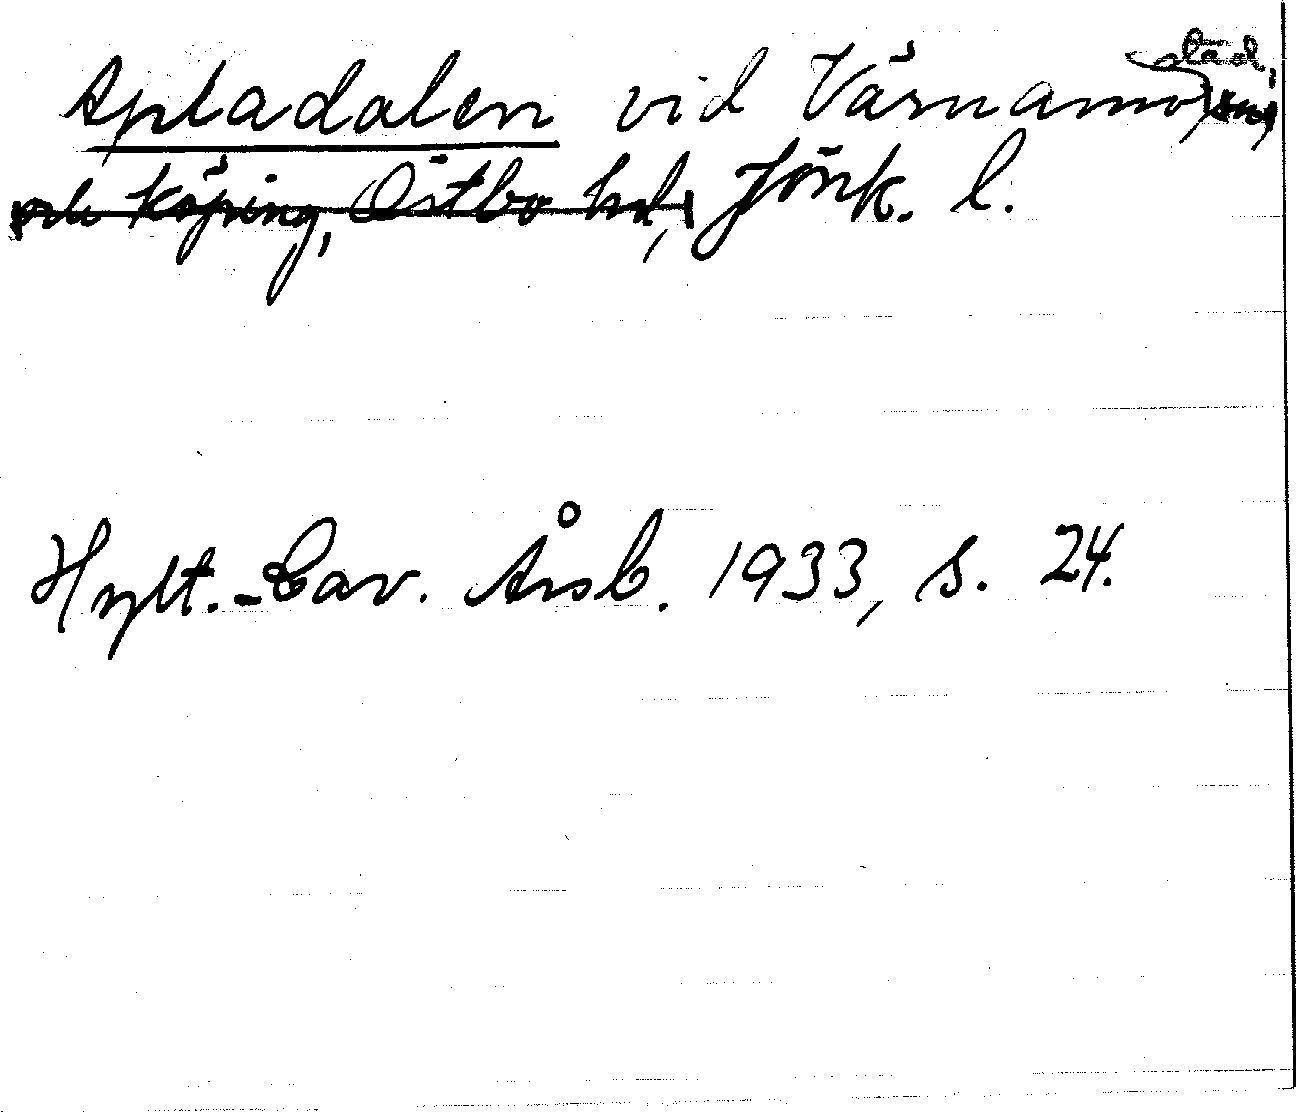 Apladalen vid Värnamo stad,
och köping, Östbo hd, Jönk. l.
Hylt.-Cav. Årsb. 1933, s. 24.